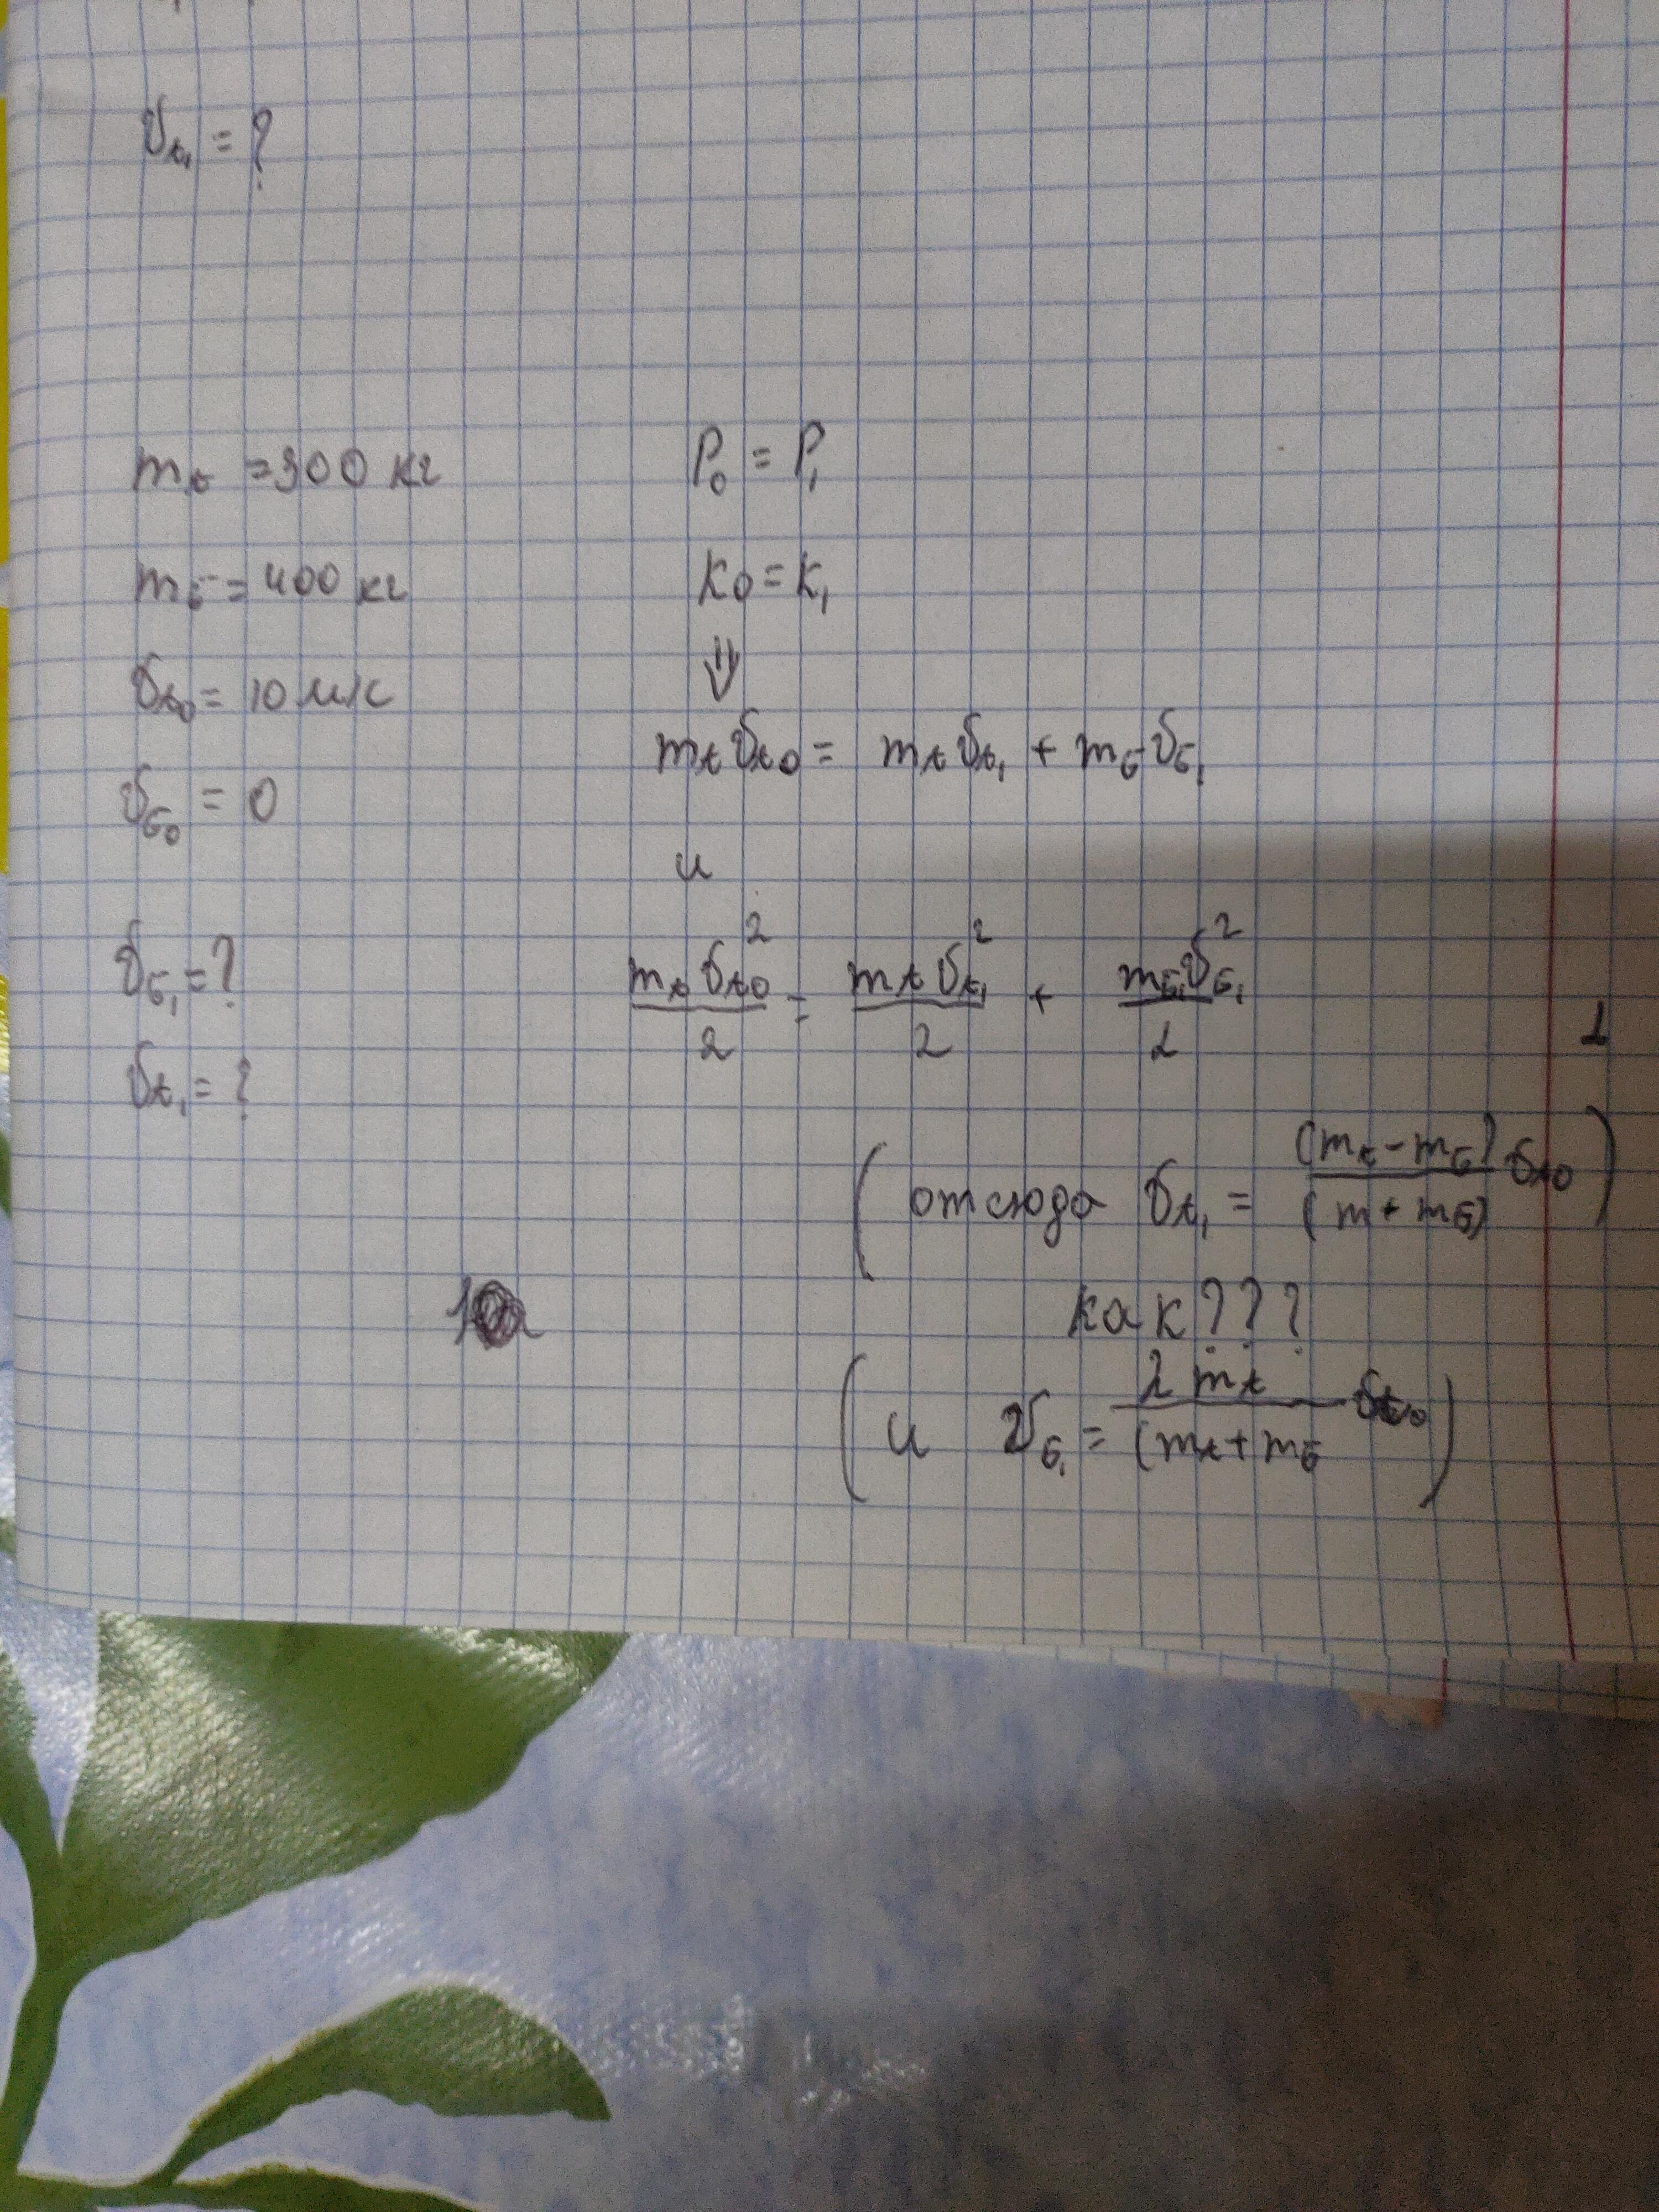 υt₁ = ?
mt = 300 кг
mб = 400 кг
υt₀ = 10 м/с
υб₀ = 0
υб₁ = ?
υt₁ = ?
P₀ = P₁
K₀ = K₁
⇓
mt υt₀ = mt υt₁ + mб υб₁
и
mt υt₀²/2 = mt υt₁²/2 + mб υб₁²/2
(отсюда υt₁ = (mt - mб)/(m + mб) υt₀)
как???
(и υб₁ = 2 mt/(mt + mб υt₀)